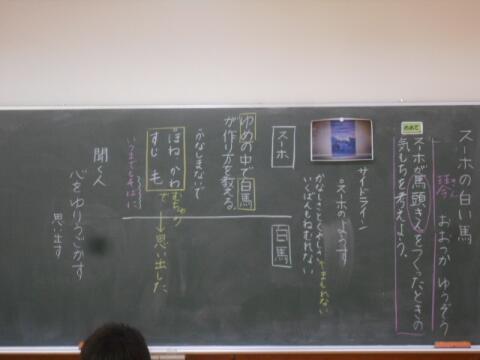 スーホの白い馬
おおつか ゆうぞう
めあて
スーホが馬頭きんをつくったときの
気もちを考えよう。
サイドライン
○スーホのようす
かなしさとくやしさ
いくばんもねむれない
スーホ
白馬
ゆめの中で白馬
が作り方を教える。
かなしまないで
ほね かわ
すじ 毛
で→思い出した
いつまでもそばに
聞く人
心をゆりうごかす
思い出す